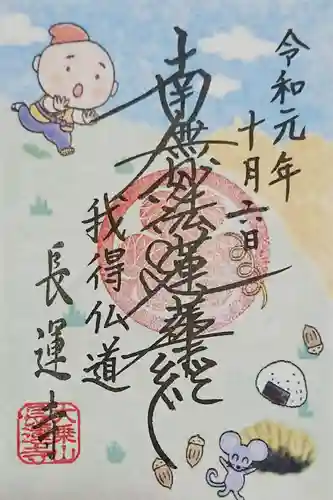 令和元年
十月六日
南無妙法蓮華経
我得仏道
長運寺